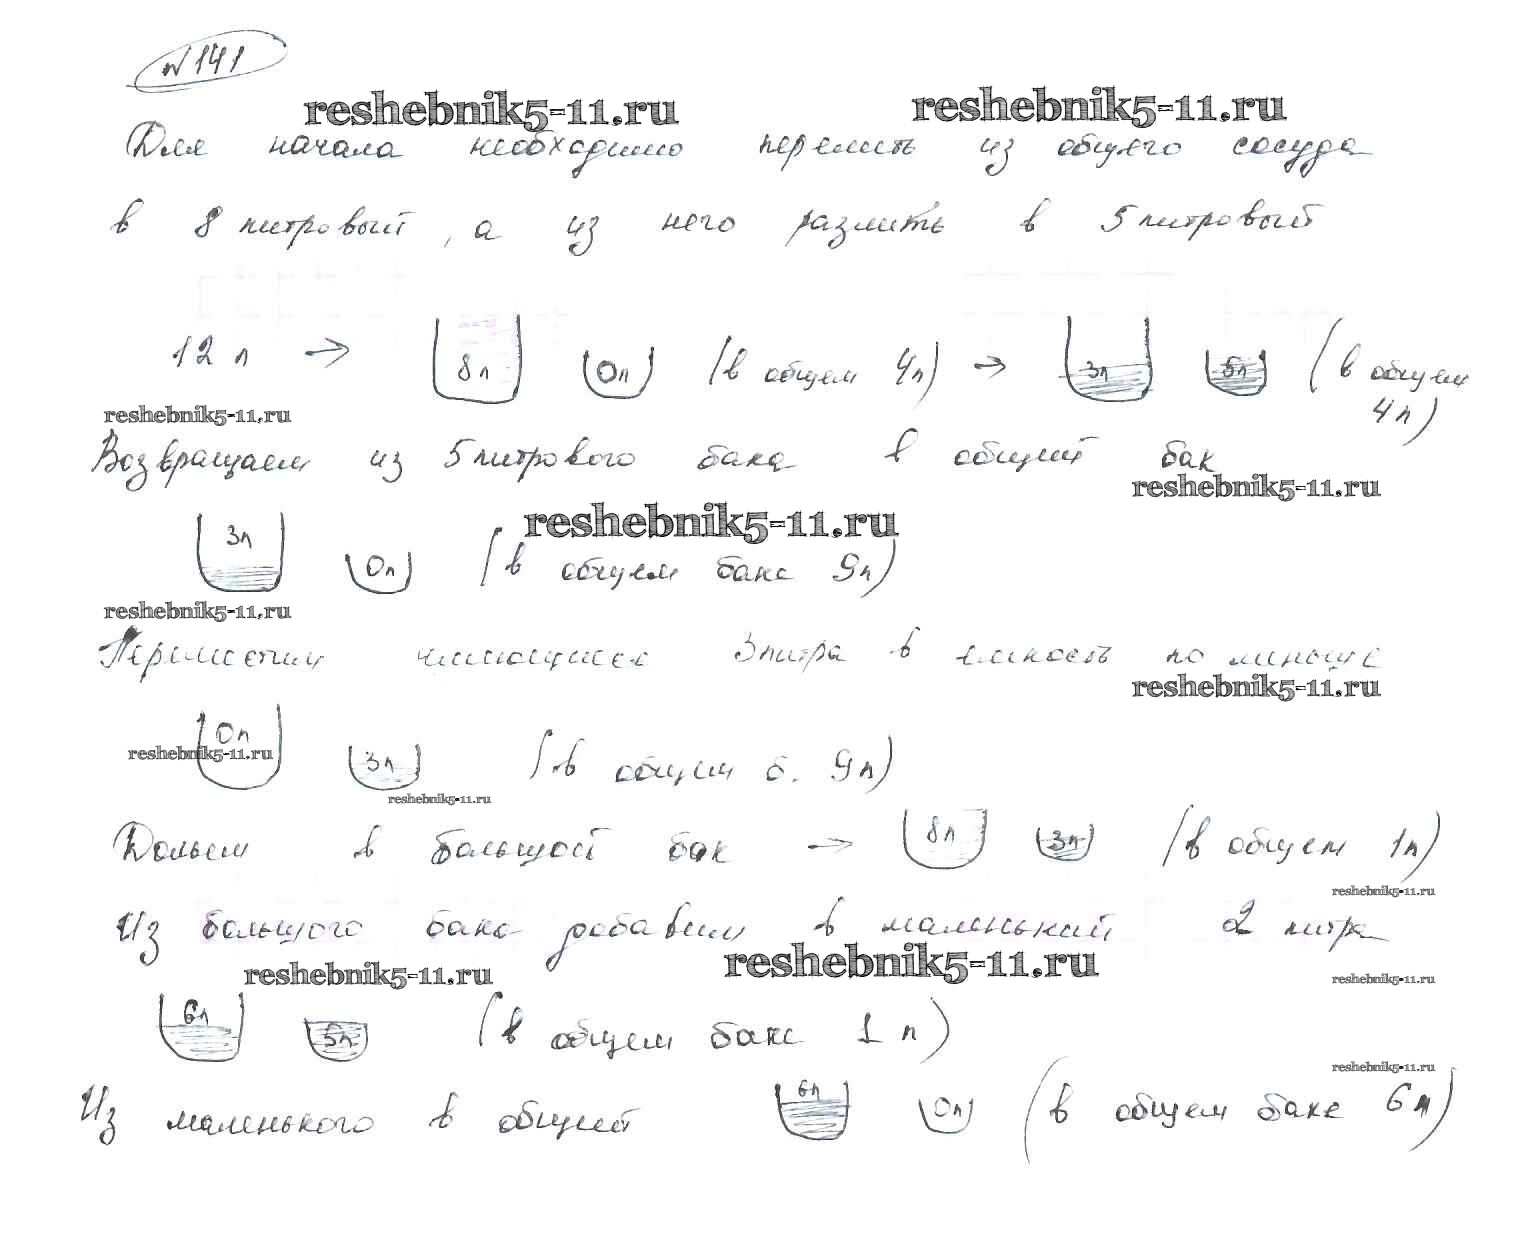 № 141
reshebnik5-11.ru reshebnik5-11.ru
Для начала необходимо перелить из общего сосуда
в 8 литровый, а из него разлить в 5 литровый
12 л → 8л 0л (в общем 4л) → 3л 5л (в общем
4л)
reshebnik5-11.ru
Возвращаем из 5 литрового бака в общий бак
reshebnik5-11.ru
reshebnik5-11.ru
3л 0л (в общем баке 9л)
reshebnik5-11.ru
Переместим имеющиеся 3 литра в емкость поменьше
reshebnik5-11.ru
0л 3л (в общем б. 9л)
reshebnik5-11.ru
reshebnik5-11.ru
Дольем в большой бак → 8л 3л (в общем 1л)
reshebnik5-11.ru
Из большого бака добавим в маленький 2 литра
reshebnik5-11.ru reshebnik5-11.ru reshebnik5-11.ru
6л 5л (в общем баке 1 л)
reshebnik5-11.ru
Из маленького в общий 6л 0л (в общем баке 6л)